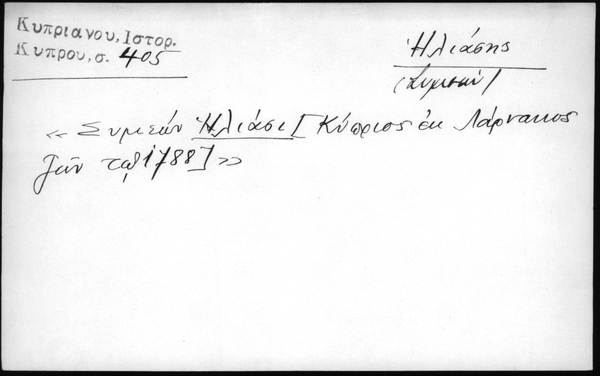 Κυπριανου, Ιστορ.
Κυπρου, σ. 405
Ἡλιάσης
(Συμεών)
« Συμεών Ἡλιάσι [Κύπριος ἐκ Λάρνακος
ζῶν τῷ 1788] »